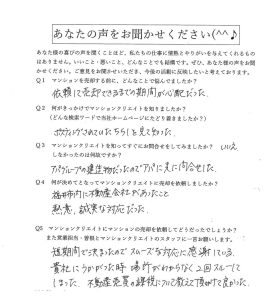 あなたの声をお聞かせください(^^♪
あなた様の喜びの声を聞くことほど、私たちの仕事に情熱とやりがいを与えてくれるもの
はありません。いいこと・悪いこと、どんなことでも結構です。ぜひ、あなた様の声をお聞
かせください。ご意見をお聞かせいただき、今後の活動に反映したいと考えております。
Q1 マンションを売却する前に、どんなことで悩んでましたか?
依頼して売却できるまでの期間が心配だった。
Q2 何がきっかけでマンションクリエイトを知りましたか?
(どんな検索ワードで当社ホームページにたどり着きましたか)
ポスティングされていたちらしを見て知った。
Q3 マンションクリエイトを知ってすぐにお問合せをしてみましたか? いいえ
しなかったのは何故ですか?
アパグループの建生物だったのでアパに先に問合せした。
Q4 何が決めてとなってマンションクリエイトに売却を依頼しましたか?
福井市内に不動産会社があったこと
熱意、誠実な対応だった。
Q5 マンションクリエイトにマンションの売却を依頼してどうだったでしょうか?
また営業担当・曽根とマンションクリエイトのスタッフに一言お願いします。
短期間で決まったのでスムーズな対応に感謝している。
貴社にうかがった時 場所がわからなく2回スルーして
しまった。不動産売買の課税について教えて頂けて良かった。